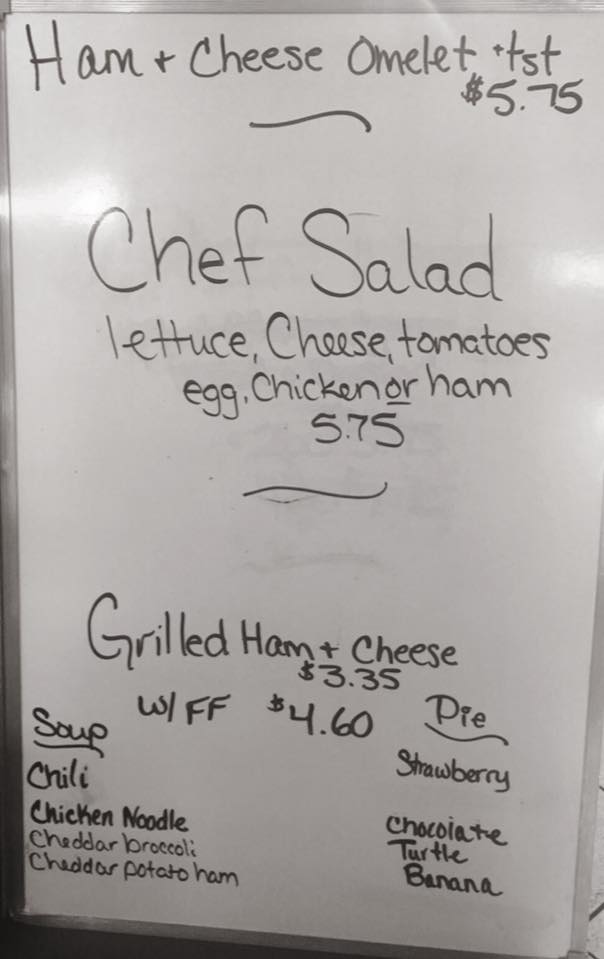 Ham + Cheese Omelet + tst
$5.75
Chef Salad
lettuce, Cheese, tomatoes
egg, Chicken or ham
5.75
Grilled Ham + Cheese
$3.35
w/ FF $4.60
Soup
Chili
Chicken Noodle
Cheddar broccoli
Cheddar potato ham
Pie
Strawberry
Chocolate
Turtle
Banana